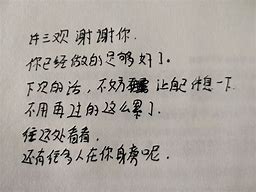 许三观 谢谢你.
你已经做的足够好了.
下次的话, 不妨 让自己休息一下
不用再过的这么累了.
往远处看看.
还有很多人在你身旁呢.